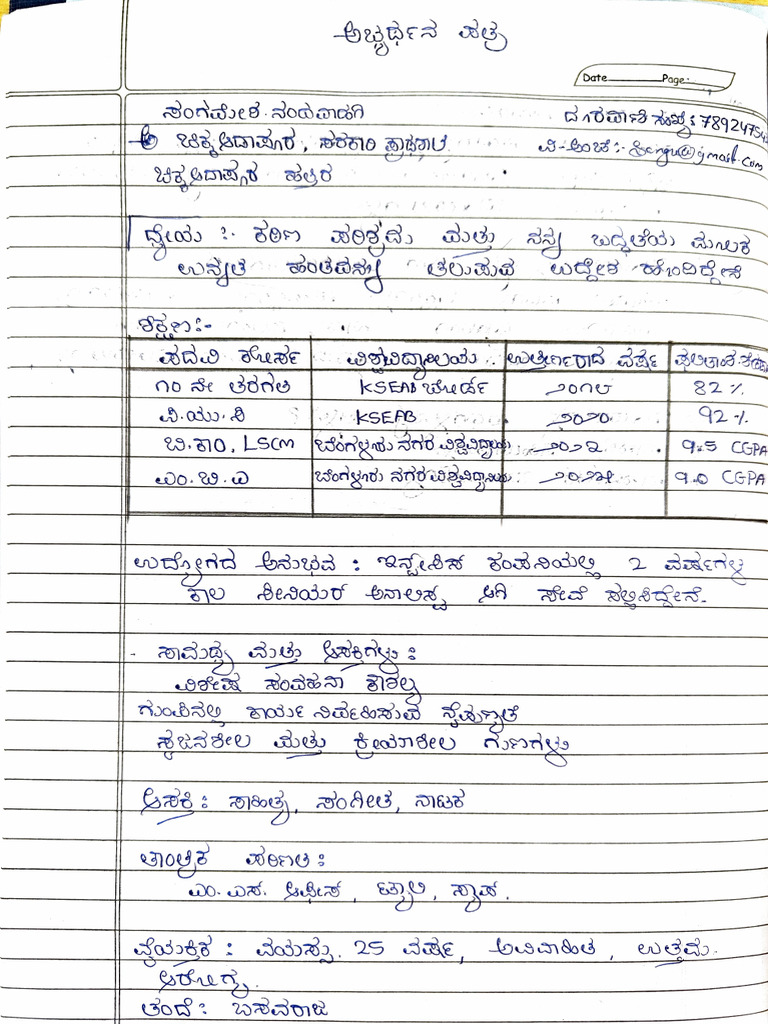 ಅಭ್ಯರ್ಥನ ಪತ್ರ
Date Page:
ಸಂಗಮೇಶ ನಂದವಾಡಗಿ ದೂರವಾಣಿ ಸಂಖ್ಯೆ:
ಚಿಕ್ಕಆದಾಪೂರ, ಸರಕಾರಿ ವಿ-ಅಂಚೆ:-
ಚಿಕ್ಕಆದಾಪೂರ ಹತ್ತಿರ
ಧ್ಯೇಯ :- ಕಠಿಣ ಪರಿಶ್ರಮ ಮತ್ತು ನನ್ನ ಬದ್ಧತೆಯ ಮೂಲಕ
ಉನ್ನತ ಹಂತವನ್ನು ತಲುಪುವ ಉದ್ದೇಶ ಹೊಂದಿದ್ದೇನೆ
ಶಿಕ್ಷಣ:-
ಪದವಿ ಕೋರ್ಸ ವಿಶ್ವವಿದ್ಯಾಲಯ ಉತ್ತೀರ್ಣರಾದ ವರ್ಷ
೧೦ ನೇ ತರಗತಿ KSEAB ಬೋರ್ಡ ೨೦೧೮ 82 %
ಪಿ.ಯು.ಸಿ KSEAB ೨೦೨೦ 92 %
ಬಿ.ಕಾಂ, LSCM ಬೆಂಗಳೂರು ನಗರ ವಿಶ್ವವಿದ್ಯಾಲಯ 9.5 CGPA
ಎಂ.ಬಿ.ಎ ಬೆಂಗಳೂರು ನಗರ ವಿಶ್ವವಿದ್ಯಾಲಯ 9.0 CGPA
ಉದ್ಯೋಗದ ಅನುಭವ : ಇನ್ಫೋಸಿಸ್ ಕಂಪನಿಯಲ್ಲಿ 2 ವರ್ಷಗಳ
ಕಾಲ ಸೀನಿಯರ್ ಅನಾಲಿಸ್ಟ ಆಗಿ ಸೇವೆ ಸಲ್ಲಿಸಿದ್ದೇನೆ.
ಸಾಮರ್ಥ್ಯ ಮತ್ತು ಆಸಕ್ತಿಗಳು :
ವಿಶೇಷ ಸಂವಹನಾ ಕೌಶಲ್ಯ
ಗುಂಪಿನಲ್ಲಿ ಕಾರ್ಯ ನಿರ್ವಹಿಸುವ ನೈಪುಣ್ಯತೆ
ಸೃಜನಶೀಲ ಮತ್ತು ಕ್ರಿಯಾಶೀಲ ಗುಣಗಳು
ಆಸಕ್ತಿ : ಸಾಹಿತ್ಯ, ಸಂಗೀತ, ನಾಟಕ
ತಾಂತ್ರಿಕ ಪರಿಣತಿ :
ಎಂ.ಎಸ್. ಆಫೀಸ್, ಟ್ಯಾಲಿ, ಸ್ಯಾಪ್.
ವೈಯಕ್ತಿಕ : ವಯಸ್ಸು 25 ವರ್ಷ, ಅವಿವಾಹಿತ, ಉತ್ತಮ
ಆರೋಗ್ಯ.
ತಂದೆ : ಬಸವರಾಜ